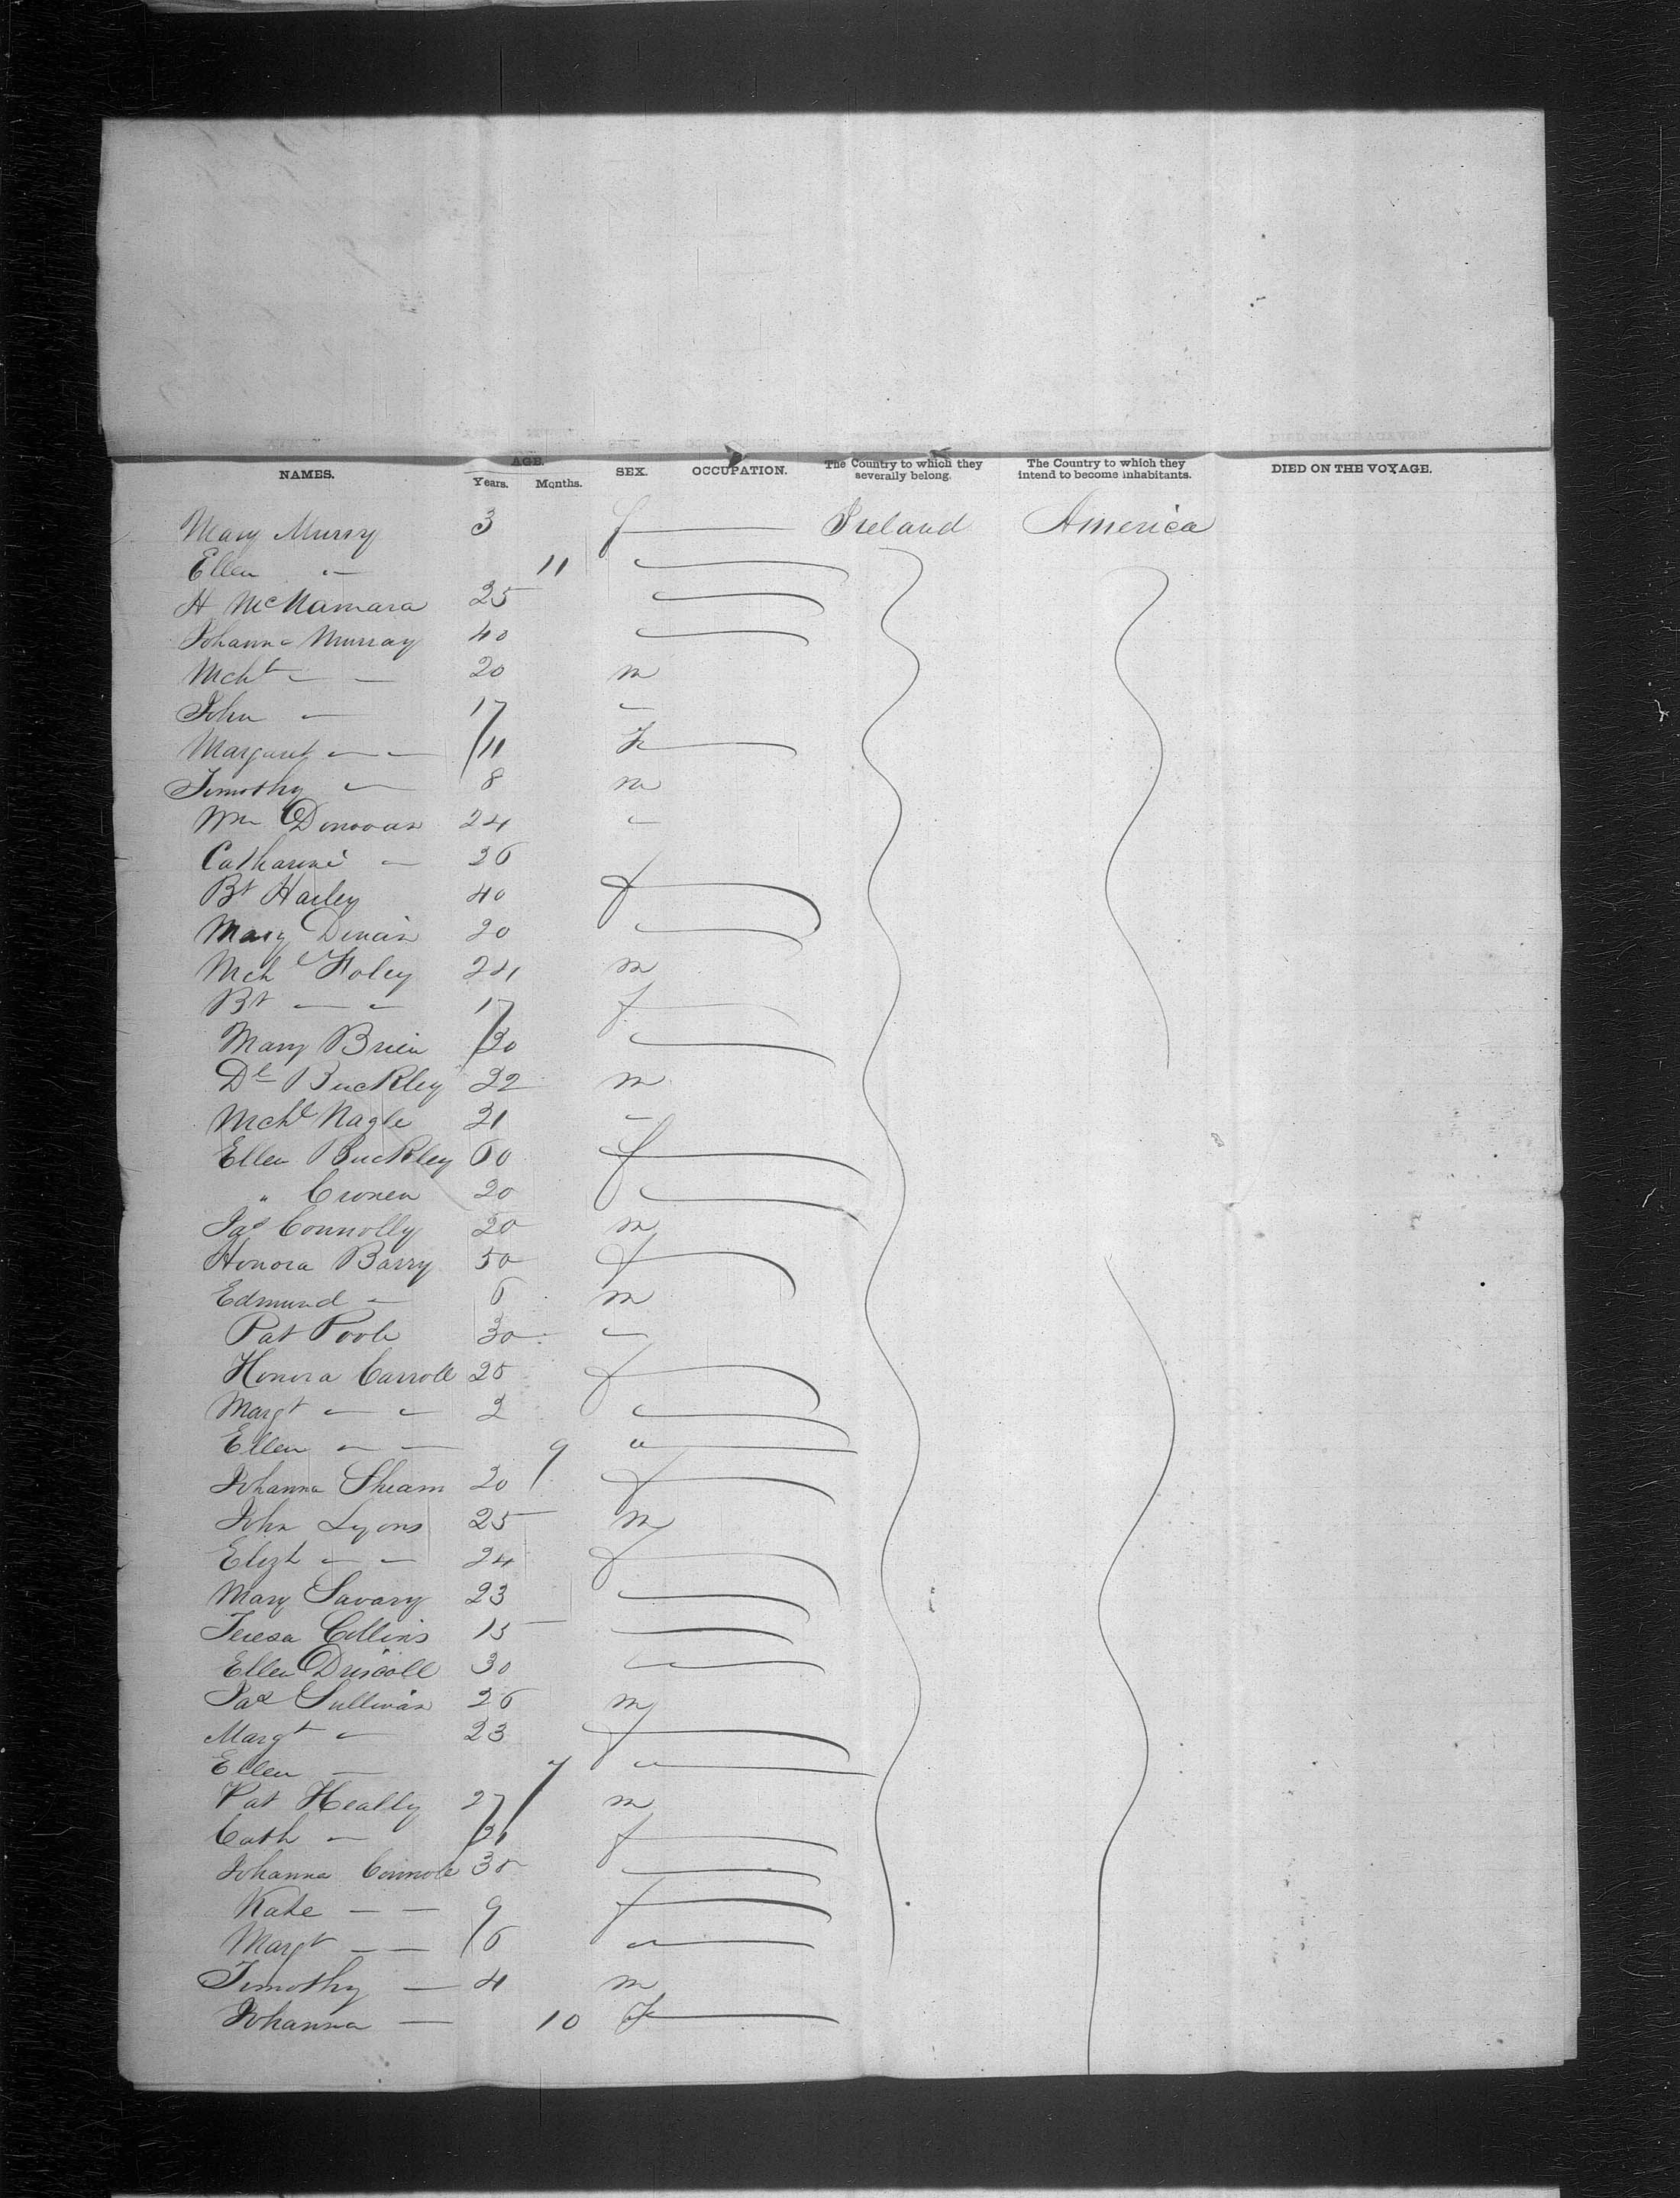 NAMES. AGE. Years. Months. SEX. OCCUPATION. The Country to which they severally belong. The Country to which they intend to become inhabitants. DIED ON THE VOYAGE.
Mary Murry 3 f Ireland America
Ellen " 11
H McNamara 25
Johanna Murray 40
Mchl — — 20 m
John — 17 "
Margaret — — 11 F
Timothy — 8 m
Wm Donovan 24 "
Catharine — 26
Bt Harley 40 f
Mary Dinan 20
Mchl Foley 24 m
Bt — — 17 f
Mary Brien 30
Dl Buckley 32 m
Mchl Nagle 21 "
Ellen Buckley 60 f
" Cronen 20
Jas Connolly 20 m
Honora Barry 50 f
Edmund — 6 m
Pat Poole 30 "
Honora Carroll 25 f
Margt — — 2
Ellen — — 9 "
Johanna Sheam 20 f
John Lyons 25 m
Elizh — — 24 f
Mary Savary 23
Teresa Collins 15
Ellen Driscoll 30
Jas Sullivan 26 m
Margt — 23 f
Ellen — 7 "
Pat Heally 27 m
Cath — 21 f
Johanna 35
Kate — — 9 f
Margt — — 6 "
Timothy — 4 m
Johanna — 10 F